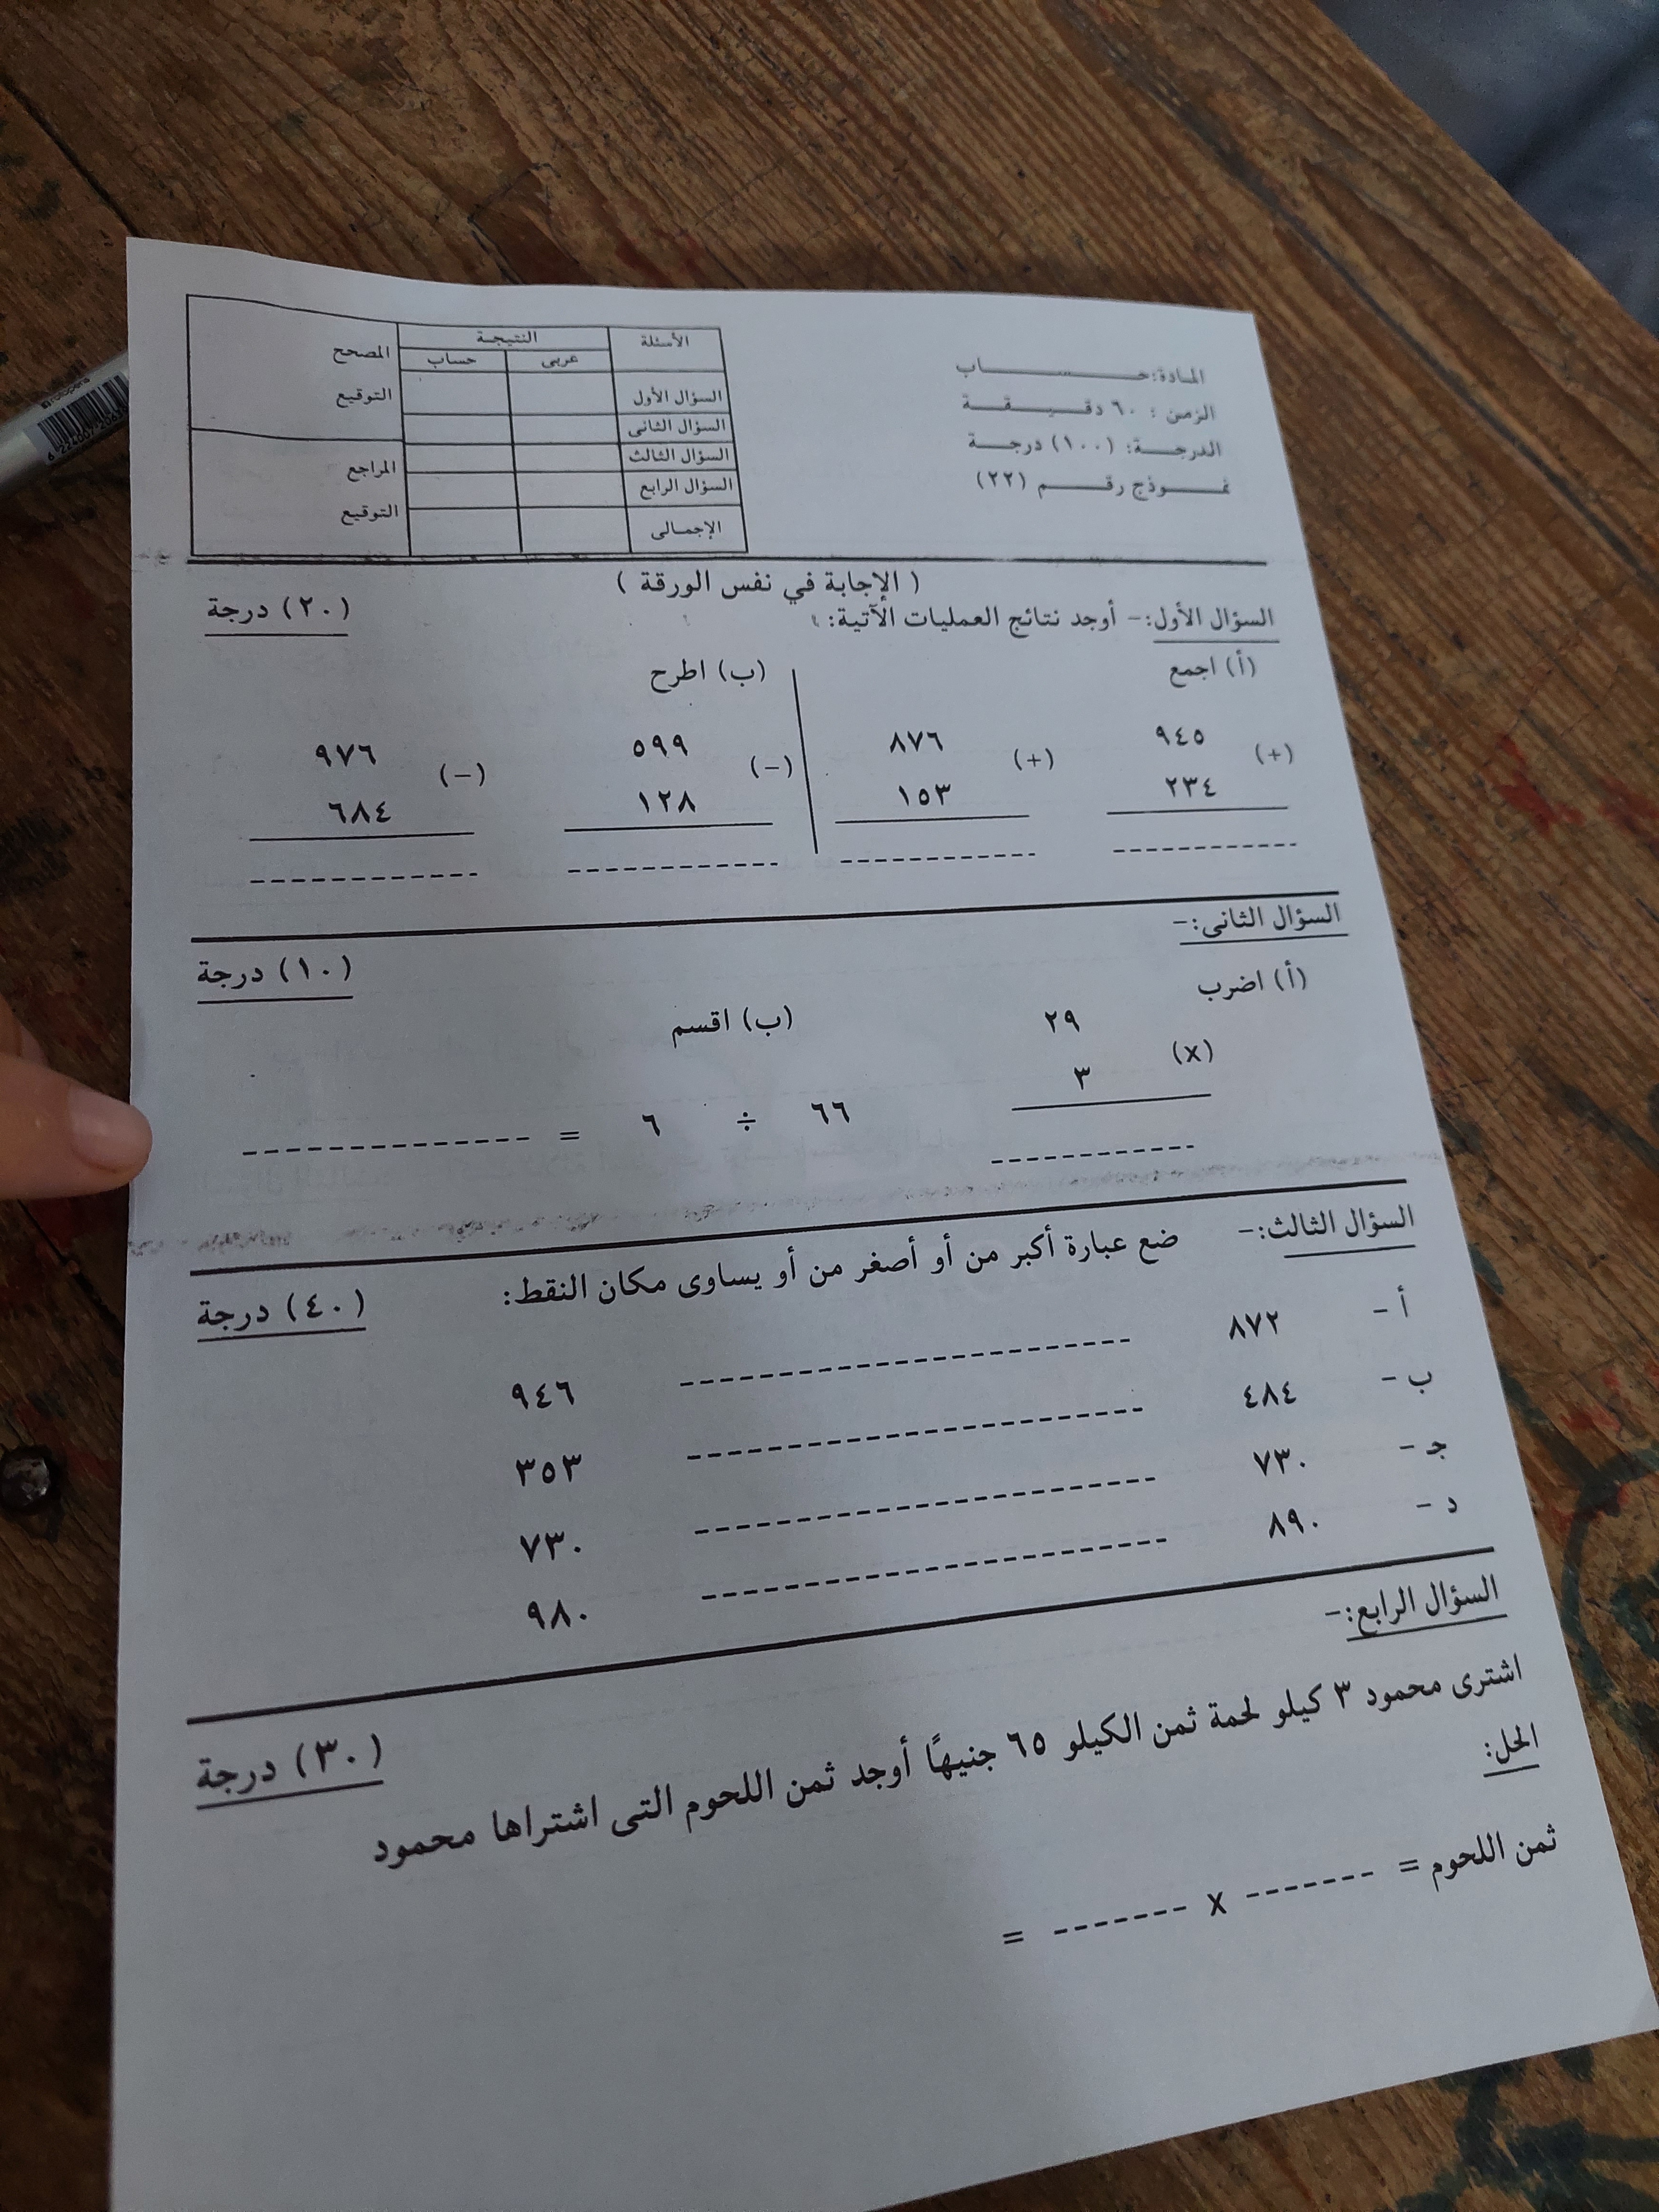 المادة: حـــــــــــــاب
الزمن : ٦٠ دقــيــقــة
الدرجــة: (١٠٠) درجــة
نمـــوذج رقـــم (٢٢)
الأسئلة النتيجـة المصحح
عربى حساب
السؤال الأول التوقيع
السؤال الثانى
السؤال الثالث المراجع
السؤال الرابع
الإجمـالى التوقيع
( الإجابة في نفس الورقة )
السؤال الأول:- أوجد نتائج العمليات الآتية: (٢٠) درجة
(أ) اجمع (ب) اطرح
٩٤٥ ٨٧٦ ٥٩٩ ٩٧٦
(+) (+) (-) (-)
٢٣٤ ١٥٣ ١٢٨ ٦٨٤
السؤال الثانى:-
(١٠) درجة
(أ) اضرب (ب) اقسم
٢٩
(x)
٣
٦٦ ÷ ٦ = --------------
السؤال الثالث:- ضع عبارة أكبر من أو أصغر من أو يساوى مكان النقط: (٤٠) درجة
أ- ٨٧٢ ---------------------- ٩٤٦
ب- ٤٨٤ ---------------------- ٣٥٣
جـ- ٧٣٠ ---------------------- ٧٣٠
د- ٨٩٠ ---------------------- ٩٨٠
السؤال الرابع:-
(٣٠) درجة
اشترى محمود ٣ كيلو لحمة ثمن الكيلو ٦٥ جنيهًا أوجد ثمن اللحوم التى اشتراها محمود
الحل:
ثمن اللحوم = ------- x ------- =